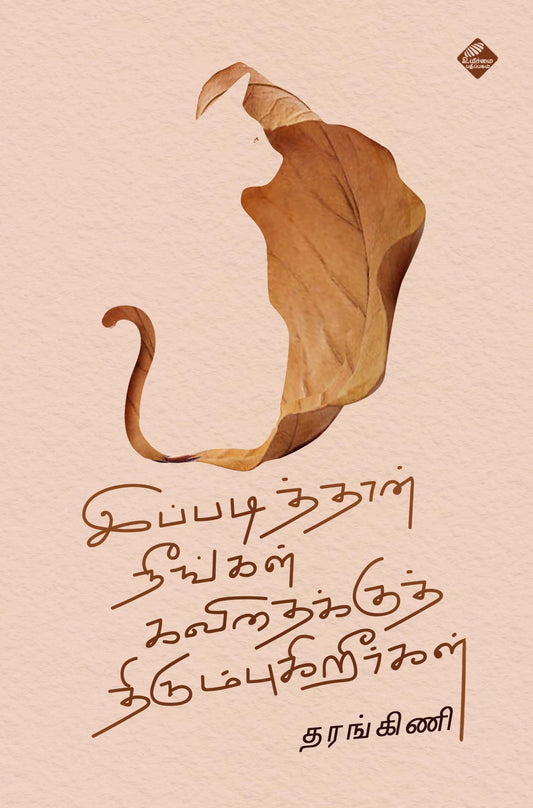 உயிர்மை
பதிப்பகம்
இப்படித்தான்
நீங்கள்
கவிதைக்குத்
திரும்புகிறீர்கள்
தரங்கிணி